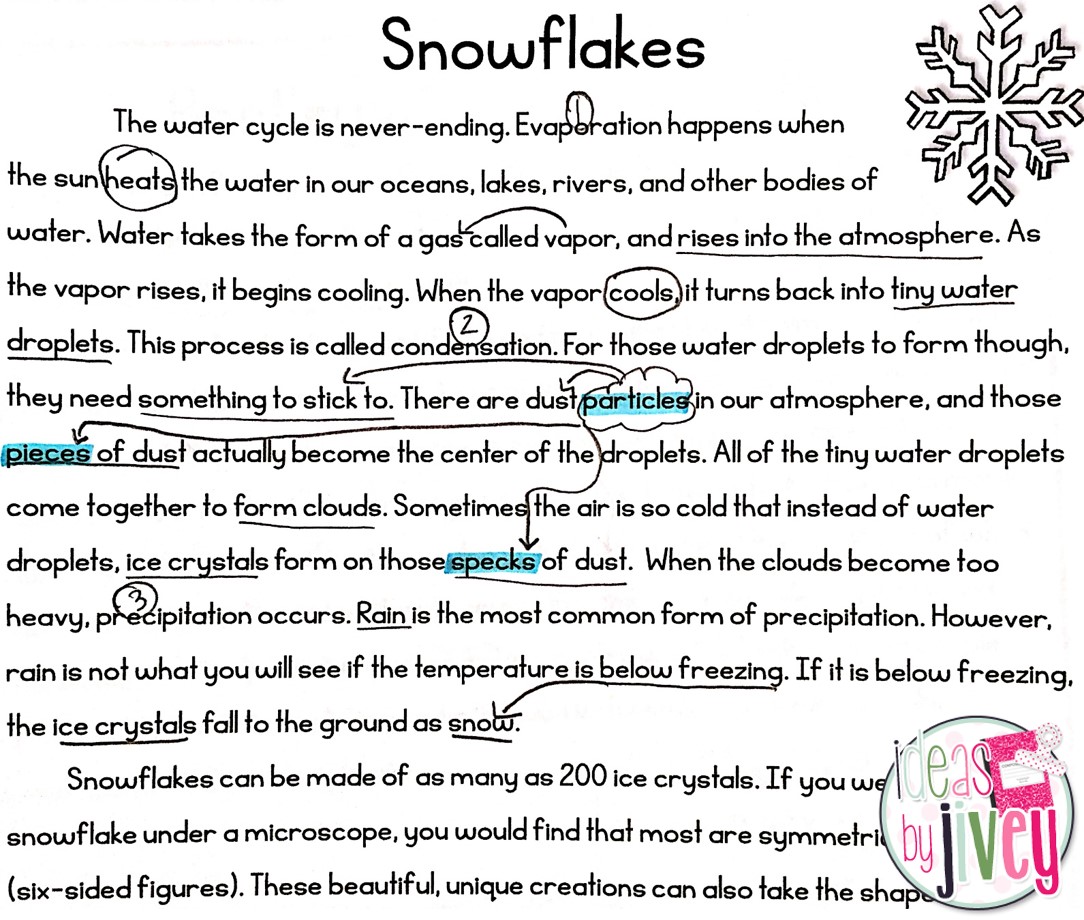 Snowflakes
The water cycle is never-ending. Evaporation happens when
1
the sun heats the water in our oceans, lakes, rivers, and other bodies of
water. Water takes the form of a gas called vapor, and rises into the atmosphere. As
the vapor rises, it begins cooling. When the vapor cools, it turns back into tiny water
2
droplets. This process is called condensation. For those water droplets to form though,
they need something to stick to. There are dust particles in our atmosphere, and those
pieces of dust actually become the center of the droplets. All of the tiny water droplets
come together to form clouds. Sometimes the air is so cold that instead of water
droplets, ice crystals form on those specks of dust. When the clouds become too
3
heavy, precipitation occurs. Rain is the most common form of precipitation. However,
rain is not what you will see if the temperature is below freezing. If it is below freezing,
the ice crystals fall to the ground as snow.
Snowflakes can be made of as many as 200 ice crystals. If you
snowflake under a microscope, you would find that most are
(six-sided figures). These beautiful, unique creations can also take the
ideas
by jivey